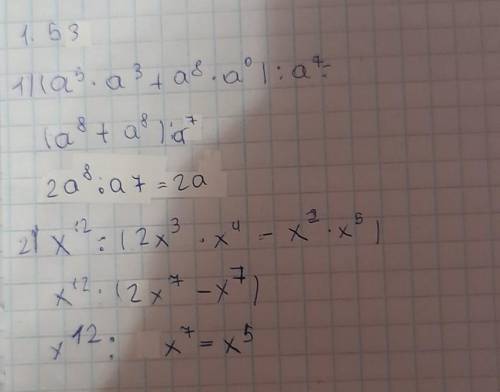 1.53
1) (a⁵ · a³ + a⁸ · a⁰) : a⁷ =
(a⁸ + a⁸) : a⁷
2a⁸ : a7 = 2a
2) x¹² : (2x³ · x⁴ - x² · x⁵)
x¹² : (2x⁷ - x⁷)
x¹² : x⁷ = x⁵